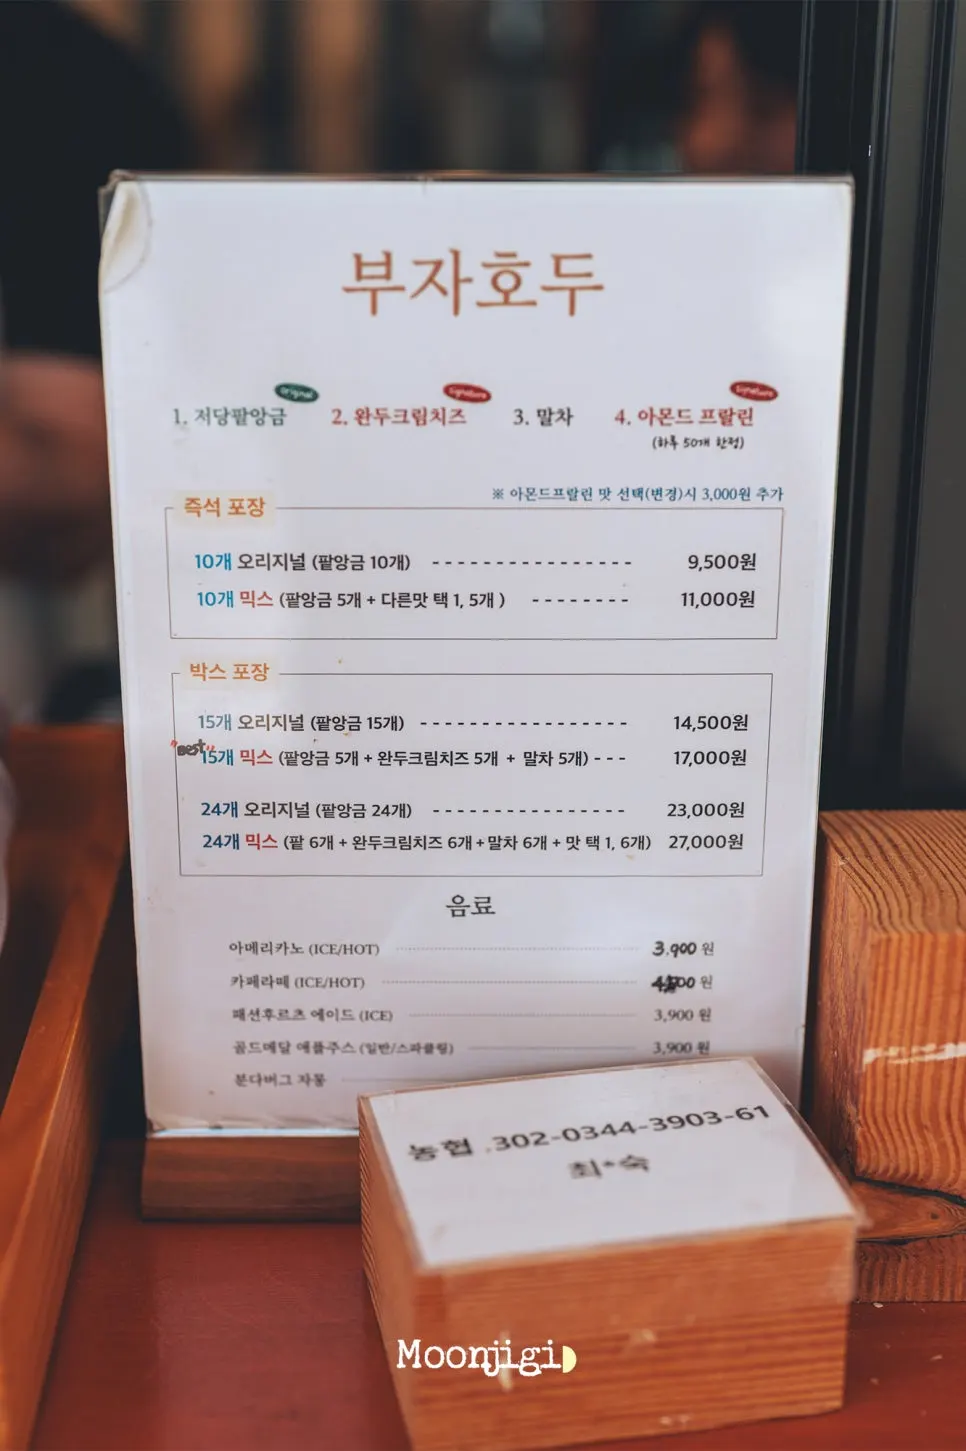 부자호두
Original
Signature
Signature
1. 저당팥앙금 2. 완두크림치즈 3. 말차 4. 아몬드 프랄린
(하루 50개 한정)
※ 아몬드프랄린 맛 선택(변경)시 3,000원 추가
즉석 포장
10개 오리지널 (팥앙금 10개) - - - - - - - - - - - - - - - - 9,500원
10개 믹스 (팥앙금 5개 + 다른맛 택 1, 5개 ) - - - - - - - - 11,000원
박스 포장
15개 오리지널 (팥앙금 15개) - - - - - - - - - - - - - - - - - 14,500원
"Best"
15개 믹스 (팥앙금 5개 + 완두크림치즈 5개 + 말차 5개) - - - 17,000원
24개 오리지널 (팥앙금 24개) - - - - - - - - - - - - - - - - 23,000원
24개 믹스 (팥 6개 + 완두크림치즈 6개 + 말차 6개 + 맛 택 1, 6개) 27,000원
음료
아메리카노 (ICE/HOT) 3.900 원
카페라떼 (ICE/HOT) 원
패션후르츠 에이드 (ICE) 3,900 원
골드메달 애플주스 (일반/스파클링) 3,900 원
분다버그 자몽
농협 .302-0344-3903-61
최*숙
Moonjigi